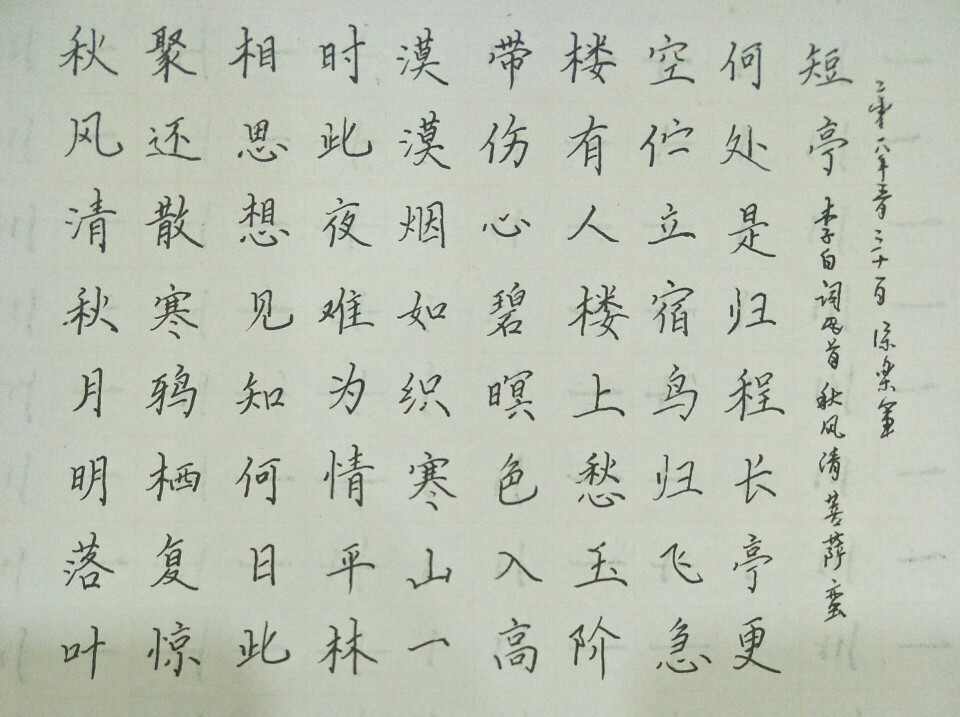 秋风清秋月明落叶
聚还散寒鸦栖复惊
相思想见知何日此
时此夜难为情平林
漠漠烟如织寒山一
带伤心碧暝色入高
楼有人楼上愁玉阶
空伫立宿鸟归飞急
何处是归程长亭更
短亭 李白词首秋风清菩萨蛮
二零一八年